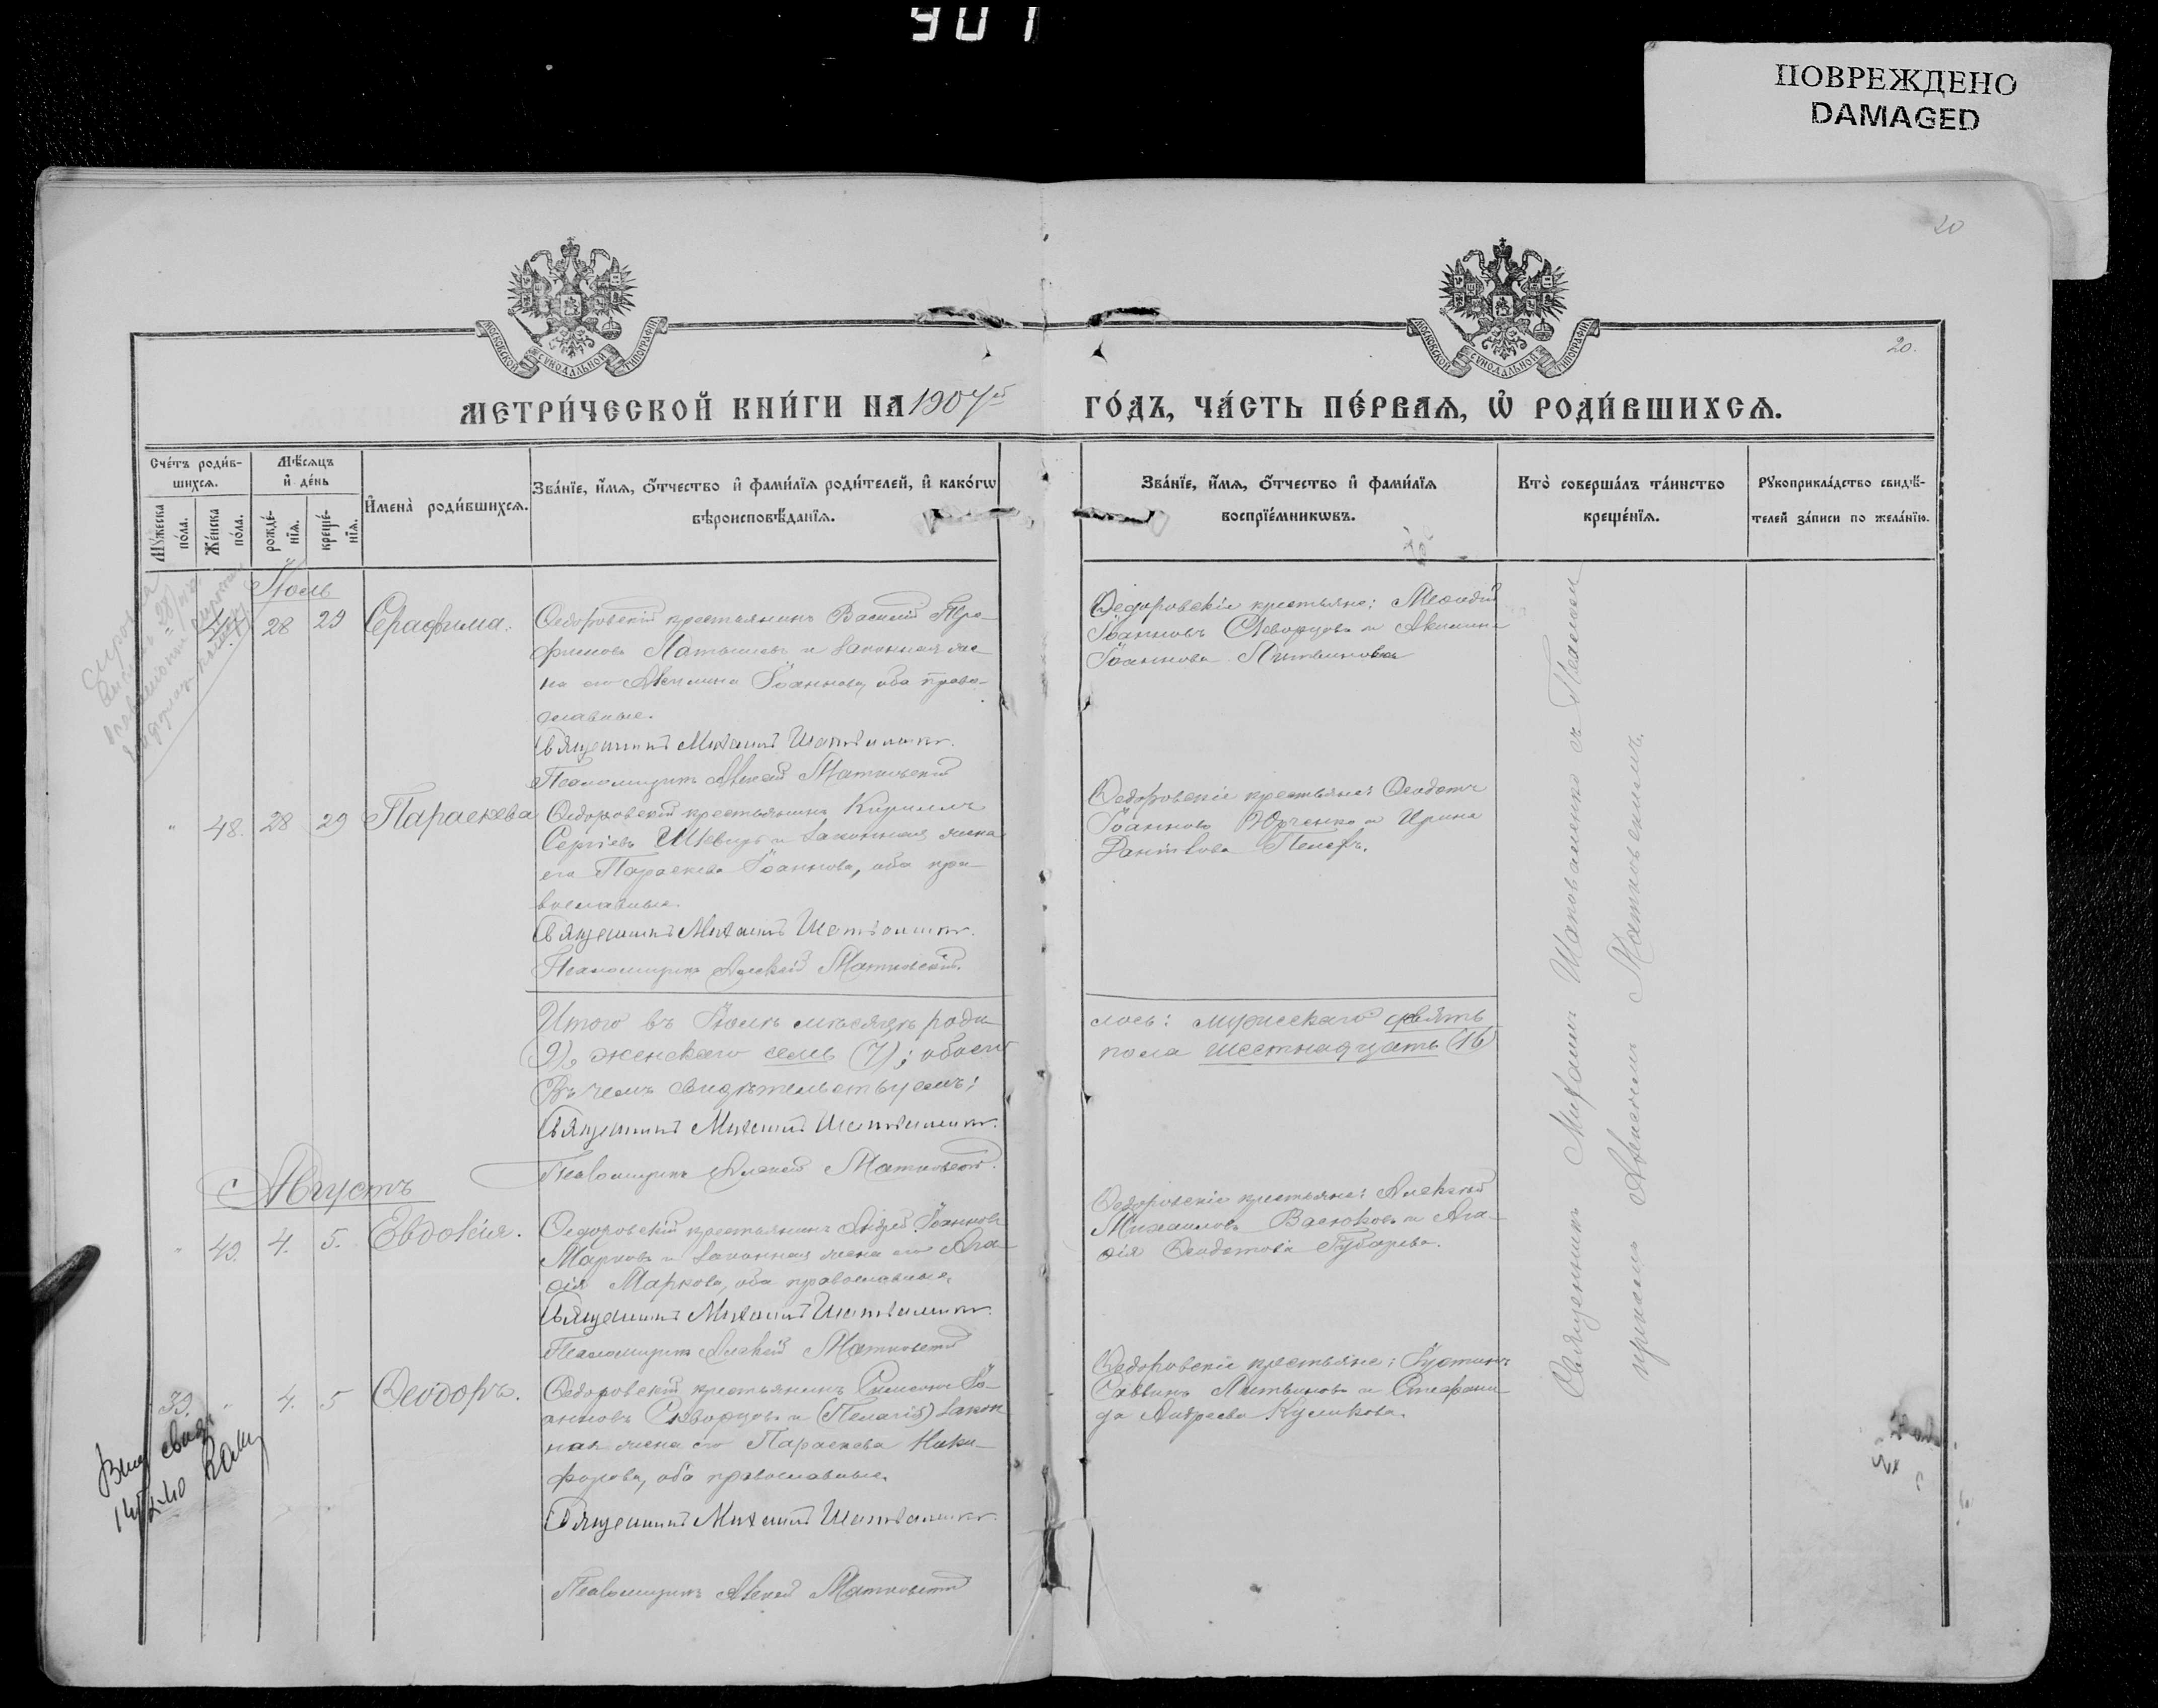 901
ПОВРЕЖДЕНО
DAMAGED
20
20.
МОСКОВСКОЙ СѴНОДАЛЬНОЙ ТИПОГРАФІИ
МОСКОВСКОЙ СѴНОДАЛЬНОЙ ТИПОГРАФІИ
МЕТРИ́ЧЕСКОЙ КНИ́ГИ НА 1907й ГО́ДЪ, ЧА́СТЬ ПЕ́РВАѦ, Ѡ РОДИ́ВШИХСѦ.
Сче́тъ роди́в-
шихсѧ.
Мꙋ́жеска
по́ла.
Же́нска
по́ла.
Мѣ́сѧцъ
и҆ де́нь
рожде́-
нїѧ.
креще́-
нїѧ.
И҆мена̀ роди́вшихсѧ.
Зва́нїе, и҆́мѧ, ѻ҆́тчество и҆ фами́лїѧ роди́телей, и҆ како́гѡ
вѣроисповѣ́данїѧ.
Зва́нїе, и҆́мѧ, ѻ҆́тчество и҆ фами́лїѧ
воспрїе́мникѡвъ.
Кто̀ соверша́лъ та́инство
креще́нїѧ.
Рꙋкоприкла́дство свидѣ́-
телей за́писи по жела́нїю.
Іюль
" 47 28 29 Серафима.
Ѳедоровскій крестьянинъ Василій Тро-
фимовъ Латышевъ и законная же-
на его Акилина Іоаннова, оба право-
славные.
Священникъ Михаилъ Шаповаленко.
Псаломщикъ Алексѣй Матковскій
Ѳедоровскіе крестьяне: Меѳодій
Іоанновъ Скворцовъ и Акилина
Іоаннова Литвинова
" 48. 28 29 Параскева
Ѳедоровскій крестьянинъ Кириллъ
Сергіевъ Шквиръ и законная жена
его Параскева Іоаннова, оба пра-
вославные.
Священникъ Михаилъ Шаповаленко.
Псаломщикъ Алексѣй Матковскій.
Ѳедоровскіе крестьяне: Ѳеодотъ
Іоанновъ Юрченко и Ирина
Даніилова
Итого въ Іюлѣ мѣсяцѣ роди-
лось: мужескаго девять
9), женскаго семь (7); обоего
пола шестнадцать (16)
Въ чемъ свидѣтельствуемъ:
Священникъ Михаилъ Шаповаленко.
Псаломщикъ Алексѣй Матковскій.
Августъ
" 49. 4. 5. Евдокія.
Ѳедоровскій крестьянинъ Андрей Іоанновъ
Марковъ и законная жена его Ага-
ѳія Маркова, оба православные.
Священникъ Михаилъ Шаповаленко.
Псаломщикъ Алексѣй Матковскій
Ѳедоровскіе крестьяне: Алексѣй
Михаиловъ Васюковъ и Ага-
ѳія Ѳеодотова Губарева.
39. " 4. 5 Ѳеодоръ.
Ѳедоровскій крестьянинъ Симеонъ Іо-
анновъ Скворцовъ и (Пелагія) закон
ная жена его Параскева Ники-
форова, оба православные.
Священникъ Михаилъ Шаповаленко.
Псаломщикъ Алексѣй Матковскій
Ѳедоровскіе крестьяне: Іустинъ
Саввинъ Литвиновъ и Стефани-
да Андреева Куликова.
Священникъ Михаилъ Шаповаленко съ Псалом
щикомъ Алексѣемъ Матковскимъ.